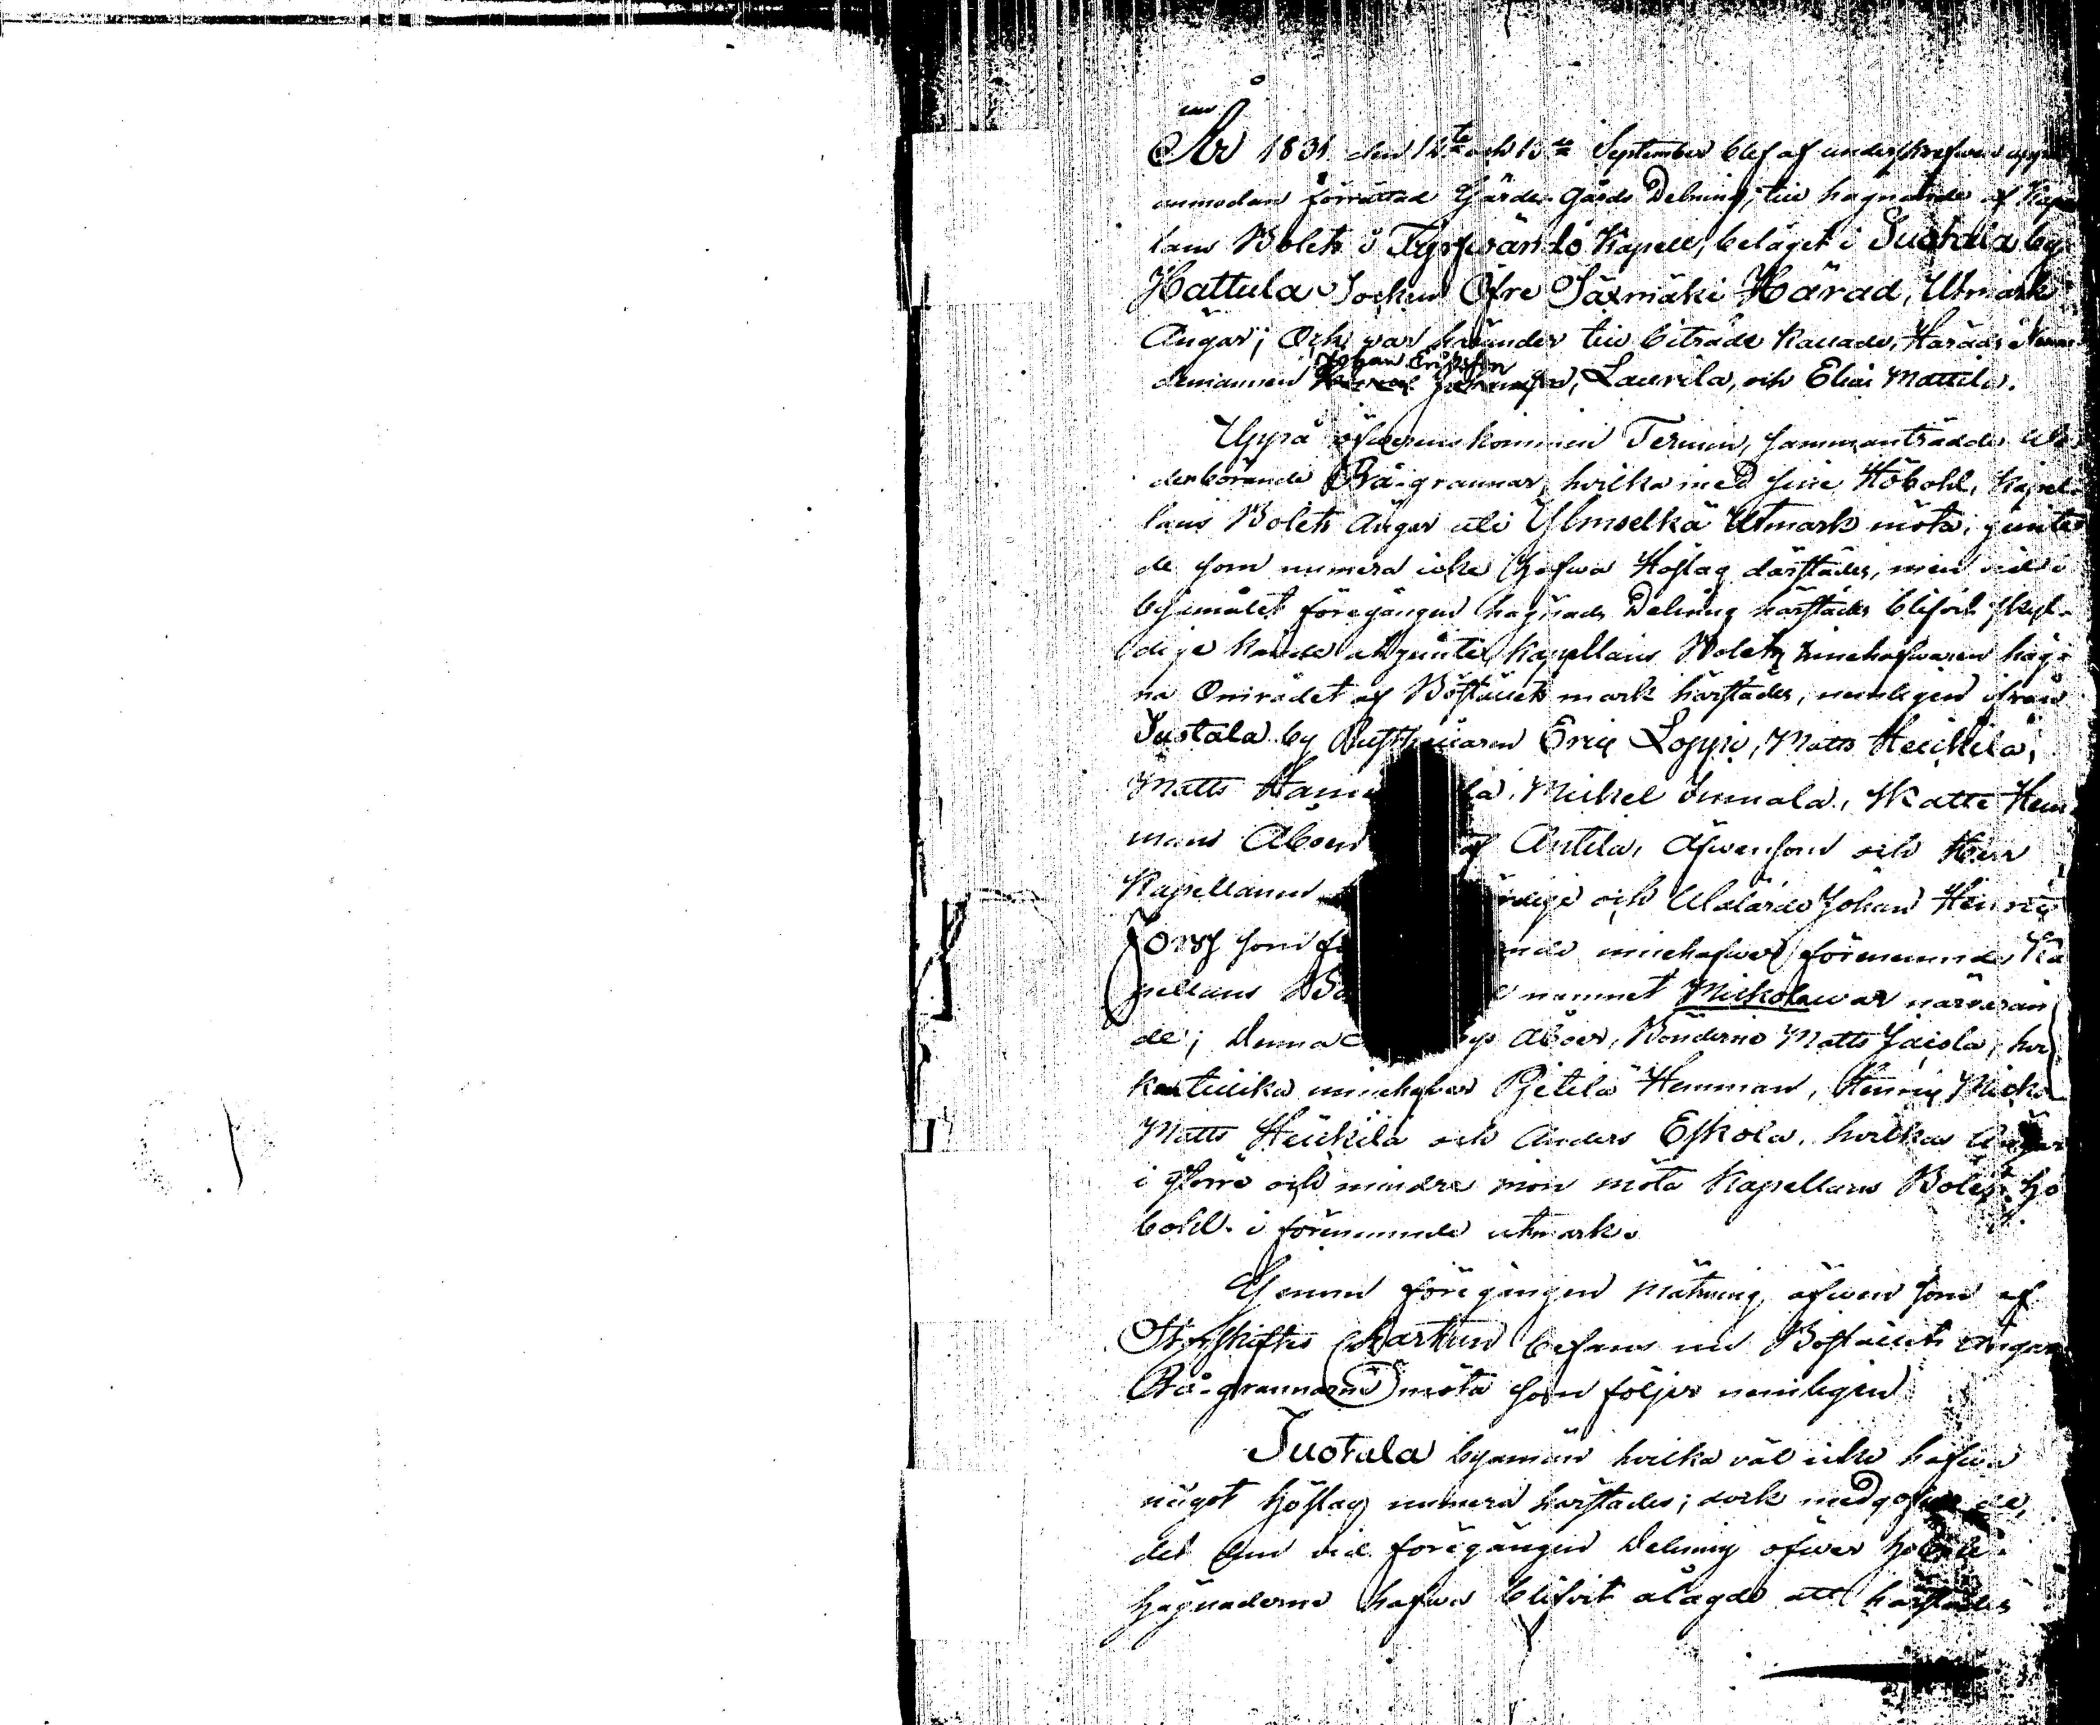 År 1831 den 12te och 13de September blef af underskrefwen uppå
anmodan förrättad Gärdes-Gårds Delning, till hägnande af Kapel
lans Bolets i Tyrfwändö Kapell, beläget i Suotala by
Hattula Socken Öfre Säxmäki Härad, Utmark
Ängar; Och war härunder till biträde kallade, Härads Nemn
demännen Johan Ericsson Laurila, och Elias Mattila.
Uppå öfwerenskommen Termin, sammanträdde
derbörande Rå-grannar, hvilka med sine Höbohl, Kapel-
lans Bolets Ängar uti Ylmselkä Utmark möta, jemte
de som numera icke hafwa Höslag därstädes, men vid
byamålet föregången hägnads Delning härstädes blifvit skyl-
dige kände at jemte Kapellans Bolets innehafwaren häg-
na Området af Böstället mark härstädes, nemligen ifrån
Suotala by Rusthållaren Eric Loppi, Matts Heikkilä,
Matts Mickel Immala, Skatte Hem
mans Åboen af Antila, Äfwensom och Herr
Kapellanen och Wälärde Johan Henric
som innehafwer förenemnde Ka
pellans nemnet Mickola war närwaran
de; Denna Åboer, Bönderne Matts Jaiola, hvil
ka tillika innehafwer Pjetilä Hemman, Henric Micko
Matts Heikkilä och Anders Eskola, hvilkas Ängar
i större och mindre mån möta Kapellans Bolets Hö
bohl i förenemnde utmark.
Genom föregången Mätning äfwen som af
Storskiftes Chartan befans nu Boställets Ängar
Rå-grannarne möta som följer nemligen
Suotala byamän hvilka väl icke hafwa
något Höslag numera härstädes; dock medgofwo de,
det den vid föregången Delning öfwer Höbohls
Hägnaderne hafwa blifvit ålagde att härstädes